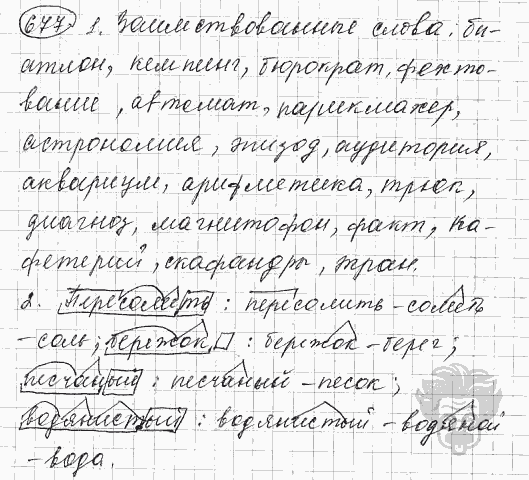 677 1. Заимствованные слова: би-
атлон, кемпинг, бюрократ, фехто-
вание, автомат, парикмахер,
астрономия, эпизод, аудитория,
аквариум, арифметика, трюк,
диагноз, магнитофон, факт, ка-
фетерий, скафандры, экран.
2. Пересолить: пересолить – солить
– соль; бережок, : бережок – берег;
песчаный: песчаный – песок;
водянистый: водянистый – водяной
– вода.